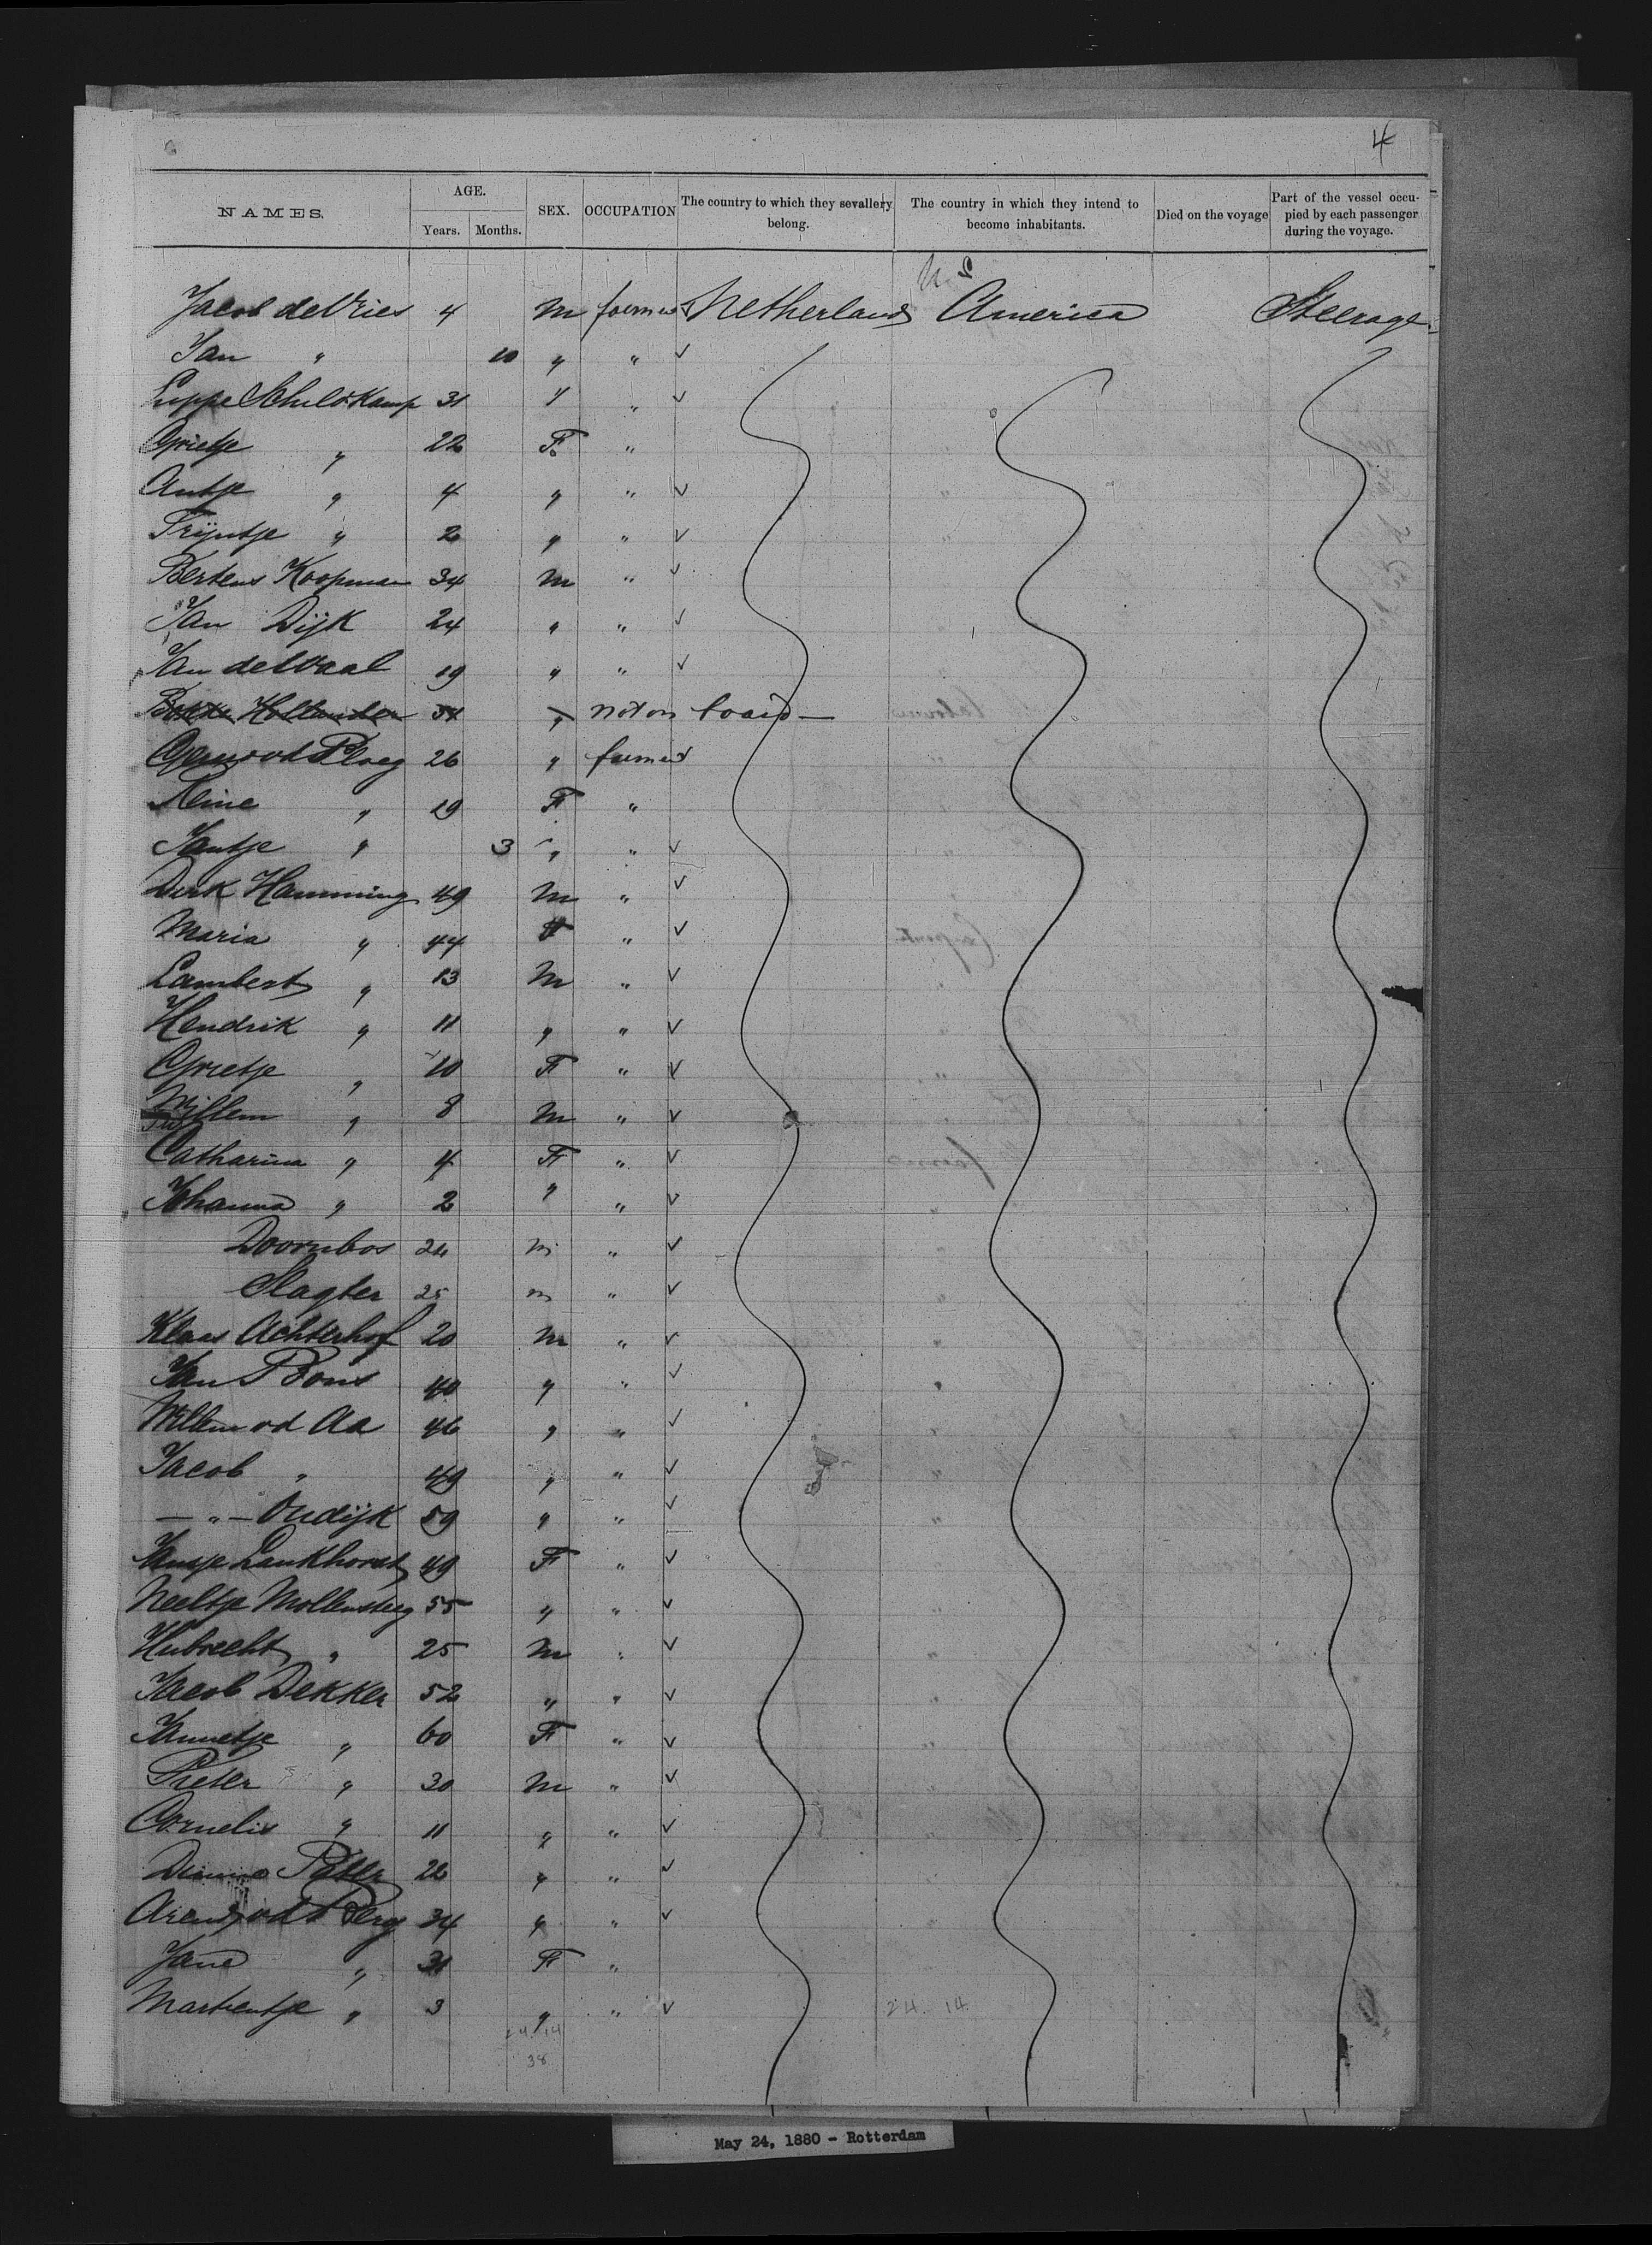 4
NAMES. AGE. Years. Months. SEX. OCCUPATION The country to which they sevallery belong. The country in which they intend to become inhabitants. Died on the voyage Part of the vessel occupied by each passenger during the voyage.
U.S
Jacob de Vries 4 m farmer Netherlands America Steerage
Jan " 10 " " ✓
Luppe Schildkamp 31 " " ✓
Grietje " 22 F "
Antje " 4 " " ✓
Trijntje " 2 " " ✓
Bertens Koopman 34 m " ✓
Jan Dijk 24 " " ✓
Jan de Waal 19 " " ✓
Hollander 54 " not on board —
vd Ploeg 26 " farmer
19 F "
Jantje " 3 " " ✓
Derk Hamming 49 m " ✓
Maria " 44 F " ✓
Lambert " 13 m " ✓
Hendrik " 11 " " ✓
Grietje " 10 F " ✓
Willem " 8 m " ✓
Catharina " 4 F " ✓
Johanna " 2 " " ✓
Doornbos 24 m " ✓
Slagter 25 m " ✓
Klaas Achterhof 20 m " ✓
Jan Bons 40 " " ✓
Willem vd Aa 46 " " ✓
Jacob " 49 " " ✓
— " — Oudijk 59 " " ✓
Lankhorst 49 F " ✓
Neeltje Mollensteeg 55 " " ✓
Hubrecht " 25 m " ✓
Jacob Dekker 52 " " ✓
Jannetje " 60 F " ✓
Pieter " 30 m " ✓
Cornelis " 11 " " ✓
22 " " ✓
Arend vd Berg 34 " " ✓
Jane " 31 F "
Martentje " 3 " " ✓
24. 14
24 14
38
May 24, 1880 - Rotterdam